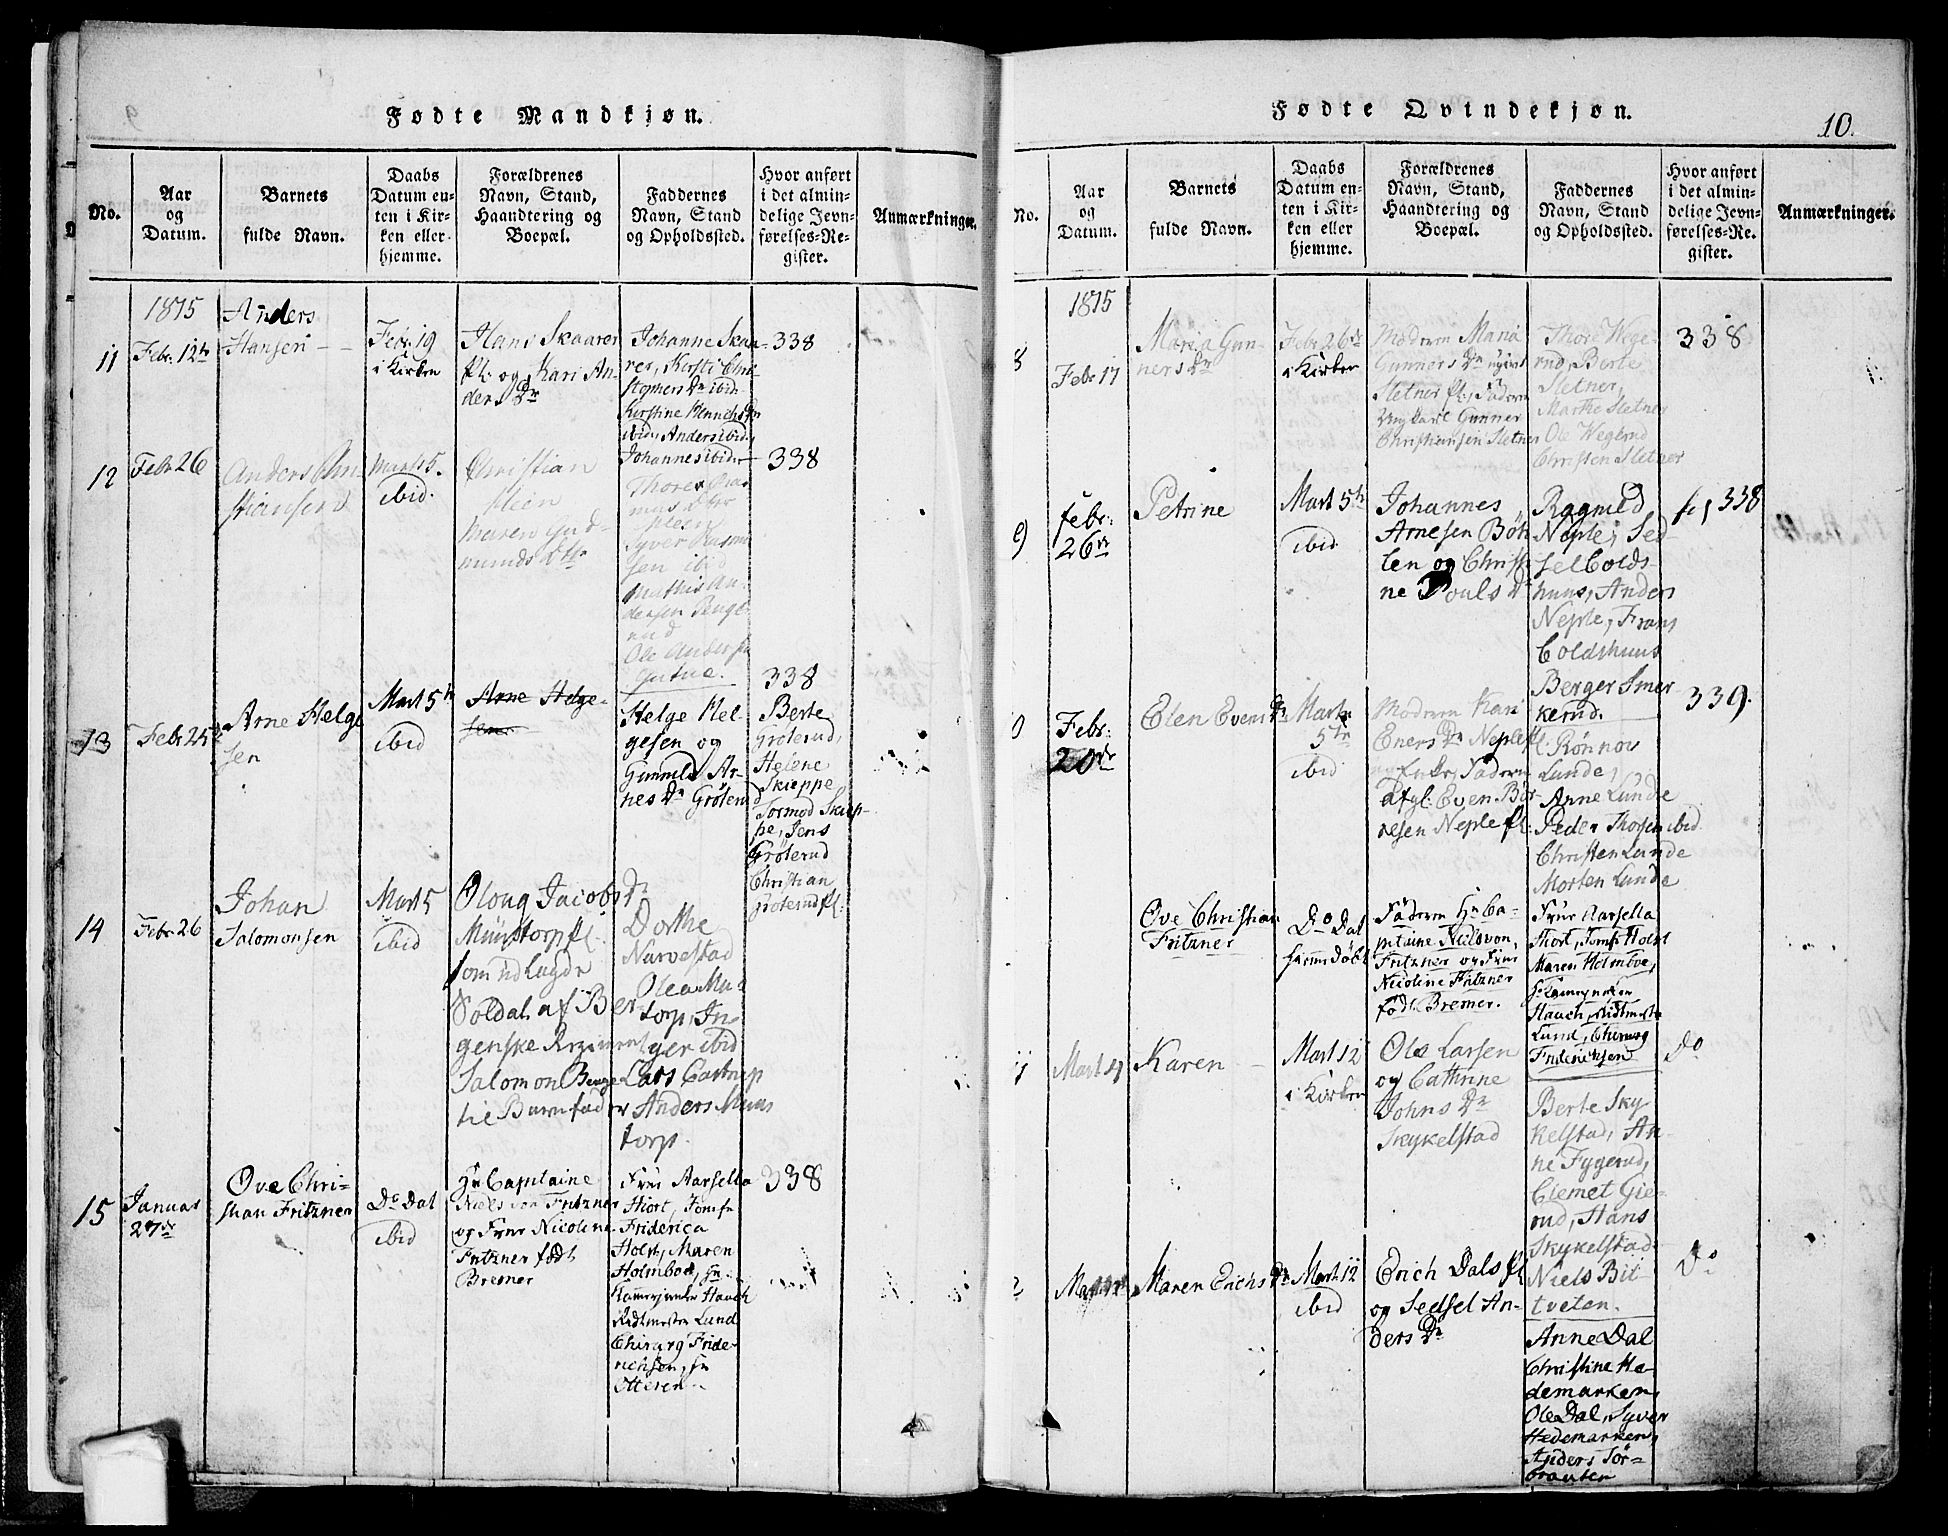 Fødte Mandkjøn.
No.
Aar
og
Datum.
Barnets
fulde Navn.
Daabs
Datum en-
ten i Kir-
ken eller
hjemme.
Forældrenes
Navn, Stand,
Haandtering og
Boepæl.
Faddernes
Navn, Stand
og Opholdssted.
Hvor anført
i det almin-
delige Jevn-
førelses-Re-
gister.
Anmærkninger.
1815
11
Febr: 12te
Anders
Hansen
Febr: 19
i Kirken
Hans Skaarer
pl: og Kari An-
ders Dr
Johanne Skaa-
rer, Kersti Chri-
stophers Dr ibid
Kirstine Henrichs Dr
ibid, Anders ibid,
Johannes ibid
338
12
Febr 26
Anders Chri
stiansen
Marts 5.
ibid.
Christian
Steen
Maren Gud-
munds Dtr
Thore
Steen
Syver Rasmu
sen ibid
Mathis An-
dersen
rud
Ole Andersen
338
13
Febr 25de
Arne Helge
sen
Mart 5te
ibid
Arne Helge-
sen
Helge Hel-
gesen og
Gunnild Ar-
nes Dr Gröterud
338
Berte
Gröterud,
Helene
Skieppe
Tormod Skiep-
pe, Jens
Gröterud
Christian
Gröterud pl:
14
Febr 26
Johan
Salomonsen
Mart 5
ibid
Oloug Jacobs Dr
Münstorp pl.
som udlagde
Soldat af Ber-
genske Regiment
Salomon
til Barnefader
Dorthe
Narvestad
Olea Mu-
torp, In-
ger ibid
Lars Castnep
Anders Muns
torp.
15
Januar
27de
Ove Chri-
stian Fritzner
Do Dat
ibid
Hr Capitaine
Niels von Fritzner
og Frue Nicoline
Fritzner født
Bremer
Frue Aarsella
Hiort, Jomfr
Friderica
Holst, Maren
Holmboe, Hr
Kammerjunker Hauch
Ridtmester Lund
Chirurg Fride-
richsen, Hr
Ottesen
338
Fødte Qvindekjøn.
10.
No.
Aar
og
Datum.
Barnets
fulde Navn.
Daabs
Datum en-
ten i Kir-
ken eller
hjemme.
Forældrenes
Navn, Stand,
Haandtering og
Boepæl.
Faddernes
Navn, Stand
og Opholdssted.
Hvor anført
i det almin-
delige Jevn-
førelses-Re-
gister.
Anmærkninger.
1815
8
Febr 17
Maria Gun-
ners Dr
Febr 26de
i Kirken
Moderen Maria
Gunners Dr ugivt
Sletner pl, Faderen
Ungkarl Gunner
Christiansen Sletner
Thore Wege-
rud, Berte
Sletner,
Marthe Sletner
Ole Wegerud
Christen Sletner
338
9
Febr:
26de
Petrine
Mart 5te
ibid
Johannes
Arnesen Böh-
len og Christi-
ne Pouls Dr
Ragnild
Neple, Sed-
sel Colds-
huus, Anders
Neple, Frans
Coldshuus
Berger Smer
kerud.
338
0
Febr:
20de
Elen Evens Dr
Mart:
5te
ibid
Moderen Kari
Eners Dr Neple pl:
Faderen
afgl: Even Bör-
resen Neple pl:
Rönnov
Lunde,
Anne Lunde
Peder Thosen ibid
Christen Lunde
Morten Lunde
339.
Ove Christian
Fritzner
Do Dat
hiemmedøbt
Faderen Hr Ca-
pitaine Niels von
Fritzner og Frue
Nicoline Fritzner
født Bremer.
Frue Aarsella
Hiort, Jomfr Holst
Maren Holmboe,
Hr Kammerjunker
Hauch, Ridtmester
Lund, Chirurg
Friderichsen
Mart 4
Karen
Mart 12
i Kirken
Ole Larsen
og Cathrine
Johns Dr
Skykelstad
Berte Sky-
kelstad, An-
ne Fygerud,
Clemet Gie-
rud, Hans
Skykelstad
Niels Bit-
tveten.
Do
2
Maren Erichs Dr
Mart 12
ibid
Erich Dals pl
og Sedsel An-
ders Dr
Anne Dal
Christine He-
demarken,
Ole Dal, Syver
Hedemarken,
Anders Tör-
Do